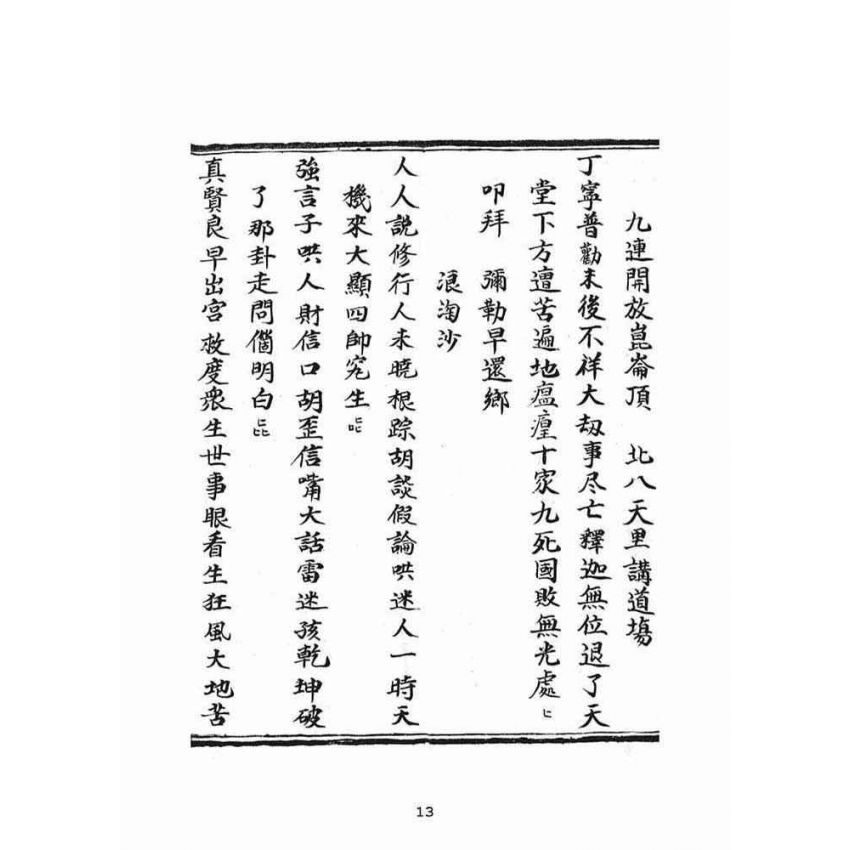 九連開放崑崙頂　北八天里講道塲
丁寧普勸末後不祥大刼事尽亡釋迦無位退了天
堂下方遭苦遍地瘟㾮十家九死國敗無光處
叩拜　彌勒早還鄉
浪淘沙
人人説修行人未曉根踪胡談假論哄迷人一時天
機來大顯四帥兖生
強言子哄人財信口胡歪信嘴大話雷迷孩乾坤破
了那卦走問個明白
真賢良早出宫救度衆生世事眼看生狂風大地苦
13